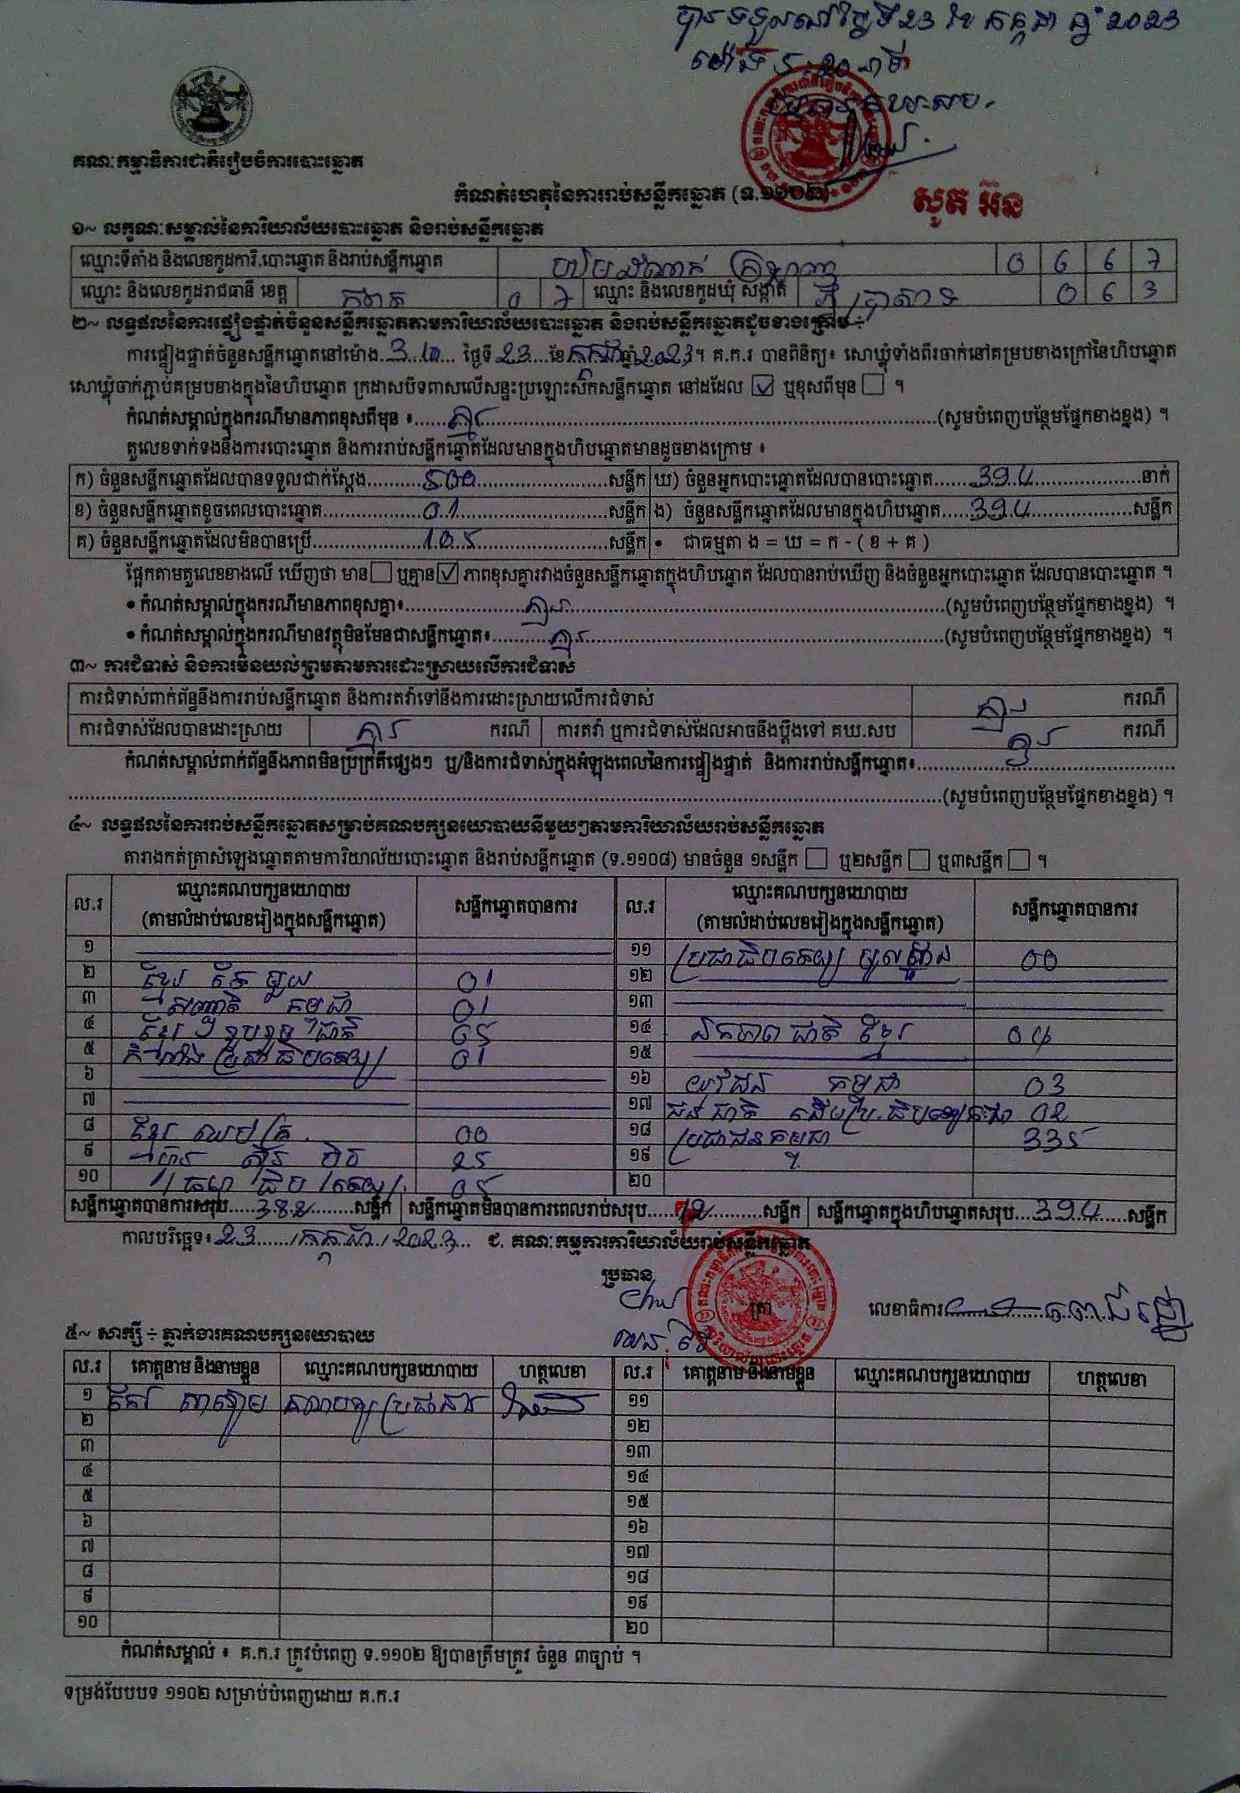 បានទទួលនៅថ្ងៃទី 23 ខែ កក្កដា ឆ្នាំ 2023
គណៈកម្មាធិការជាតិរៀបចំការបោះឆ្នោត
កំណត់ហេតុនៃការរាប់សន្លឹកឆ្នោត (ទ.១១០២)
សូត អ៊ន
១~ លក្ខណៈសម្គាល់នៃការិយាល័យបោះឆ្នោត និងរាប់សន្លឹកឆ្នោត
ឈ្មោះទីតាំង និងលេខកូដការិ.បោះឆ្នោត និងរាប់សន្លឹកឆ្នោត 0 6 6 7
ឈ្មោះ និងលេខកូដរាជធានី ខេត្ត កំពត 0 7 ឈ្មោះ និងលេខកូដឃុំ សង្កាត់ ភ្នំប្រាសាទ 0 6 3
២~ លទ្ធផលនៃការផ្ទៀងផ្ទាត់ចំនួនសន្លឹកឆ្នោតតាមការិយាល័យបោះឆ្នោត និងរាប់សន្លឹកឆ្នោតដូចខាងក្រោម ÷
ការផ្ទៀងផ្ទាត់ចំនួនសន្លឹកឆ្នោតនៅម៉ោង 3:10 ថ្ងៃទី 23 ខែ កក្កដា ឆ្នាំ 2023។ គ.ក.រ បានពិនិត្យ៖ សោឃ្លុំទាំងពីរចាក់នៅគម្របខាងក្រៅនៃហិបឆ្នោត
សោឃ្លុំចាក់ភ្ជាប់គម្របខាងក្នុងនៃហិបឆ្នោត ក្រដាសបិទពាសលើសន្ទះប្រឡោះស៊កសន្លឹកឆ្នោត នៅដដែល ☑ ឬខុសពីមុន ☐ ។
កំណត់សម្គាល់ក្នុងករណីមានភាពខុសពីមុន ៖ គ្មាន (សូមបំពេញបន្ថែមផ្នែកខាងខ្នង) ។
តួលេខទាក់ទងនឹងការបោះឆ្នោត និងការរាប់សន្លឹកឆ្នោតដែលមានក្នុងហិបឆ្នោតមានដូចខាងក្រោម ៖
ក) ចំនួនសន្លឹកឆ្នោតដែលបានទទួលជាក់ស្តែង 500 សន្លឹក ឃ) ចំនួនអ្នកបោះឆ្នោតដែលបានបោះឆ្នោត 394 នាក់
ខ) ចំនួនសន្លឹកឆ្នោតខូចពេលបោះឆ្នោត 01 សន្លឹក ង) ចំនួនសន្លឹកឆ្នោតដែលមានក្នុងហិបឆ្នោត 394 សន្លឹក
គ) ចំនួនសន្លឹកឆ្នោតដែលមិនបានប្រើ 105 សន្លឹក • ជាធម្មតា ង = ឃ = ក - ( ខ + គ )
ផ្អែកតាមតួលេខខាងលើ ឃើញថា មាន ☐ ឬគ្មាន ☑ ភាពខុសគ្នារវាងចំនួនសន្លឹកឆ្នោតក្នុងហិបឆ្នោត ដែលបានរាប់ឃើញ និងចំនួនអ្នកបោះឆ្នោត ដែលបានបោះឆ្នោត ។
• កំណត់សម្គាល់ក្នុងករណីមានភាពខុសគ្នា៖ គ្មាន (សូមបំពេញបន្ថែមផ្នែកខាងខ្នង) ។
• កំណត់សម្គាល់ក្នុងករណីមានវត្ថុមិនមែនជាសន្លឹកឆ្នោត៖ គ្មាន (សូមបំពេញបន្ថែមផ្នែកខាងខ្នង) ។
៣~ ការជំទាស់ និងការមិនយល់ព្រមតាមការដោះស្រាយលើការជំទាស់
ការជំទាស់ពាក់ព័ន្ធនឹងការរាប់សន្លឹកឆ្នោត និងការតវ៉ាទៅនឹងការដោះស្រាយលើការជំទាស់ គ្មាន ករណី
ការជំទាស់ដែលបានដោះស្រាយ គ្មាន ករណី ការតវ៉ា ឬការជំទាស់ដែលអាចនឹងប្តឹងទៅ គឃ.សប គ្មាន ករណី
កំណត់សម្គាល់ពាក់ព័ន្ធនឹងភាពមិនប្រក្រតីផ្សេងៗ ឬ/និងការជំទាស់ក្នុងអំឡុងពេលនៃការផ្ទៀងផ្ទាត់ និងការរាប់សន្លឹកឆ្នោត៖
(សូមបំពេញបន្ថែមផ្នែកខាងខ្នង) ។
៤~ លទ្ធផលនៃការរាប់សន្លឹកឆ្នោតសម្រាប់គណបក្សនយោបាយនីមួយៗតាមការិយាល័យរាប់សន្លឹកឆ្នោត
តារាងកត់ត្រាសំឡេងឆ្នោតតាមការិយាល័យបោះឆ្នោត និងរាប់សន្លឹកឆ្នោត (ទ.១១០៨) មានចំនួន ១សន្លឹក ☐ ឬ២សន្លឹក ☐ ឬ៣សន្លឹក ☐ ។
ល.រ ឈ្មោះគណបក្សនយោបាយ (តាមលំដាប់លេខរៀងក្នុងសន្លឹកឆ្នោត) សន្លឹកឆ្នោតបានការ ល.រ ឈ្មោះគណបក្សនយោបាយ (តាមលំដាប់លេខរៀងក្នុងសន្លឹកឆ្នោត) សន្លឹកឆ្នោតបានការ
១ ១១ ប្រជាធិបតេយ្យ មូលដ្ឋាន 00
២ ខ្មែរ តែ មួយ 01 ១២
៣ សញ្ជាតិ កម្ពុជា 01 ១៣
៤ ខ្មែរ រួបរួម ជាតិ 05 ១៤ ឯកភាព ជាតិ ខ្មែរ 04
៥ កម្លាំង ប្រជាធិបតេយ្យ 01 ១៥
៦ ១៦ យុវជន កម្ពុជា 03
៧ ១៧ 02
៨ ខ្មែរ 00 ១៨ ប្រជាជនកម្ពុជា 335
៩ ហ៊្វុន ស៊ិន ប៉ិច 25 ១៩
១០ ធិបតេយ្យ 05 ២០
សន្លឹកឆ្នោតបានការសរុប 382 សន្លឹក សន្លឹកឆ្នោតមិនបានការពេលរាប់សរុប 12 សន្លឹក សន្លឹកឆ្នោតក្នុងហិបឆ្នោតសរុប 394 សន្លឹក
កាលបរិច្ឆេទ៖ 23 / កក្កដា / 2023 ជ. គណៈកម្មការការិយាល័យរាប់សន្លឹកឆ្នោត
ប្រធាន
ត្រា
លេខាធិការ
៥~ សាក្សី ÷ ភ្នាក់ងារគណបក្សនយោបាយ
ល.រ គោត្តនាម និងនាមខ្លួន ឈ្មោះគណបក្សនយោបាយ ហត្ថលេខា ល.រ គោត្តនាម និងនាមខ្លួន ឈ្មោះគណបក្សនយោបាយ ហត្ថលេខា
១ គណបក្សប្រជាជន ១១
២ ១២
៣ ១៣
៤ ១៤
៥ ១៥
៦ ១៦
៧ ១៧
៨ ១៨
៩ ១៩
១០ ២០
កំណត់សម្គាល់ ៖ គ.ក.រ ត្រូវបំពេញ ទ.១១០២ ឱ្យបានត្រឹមត្រូវ ចំនួន ៣ច្បាប់ ។
ទម្រង់បែបបទ ១១០២ សម្រាប់បំពេញដោយ គ.ក.រ